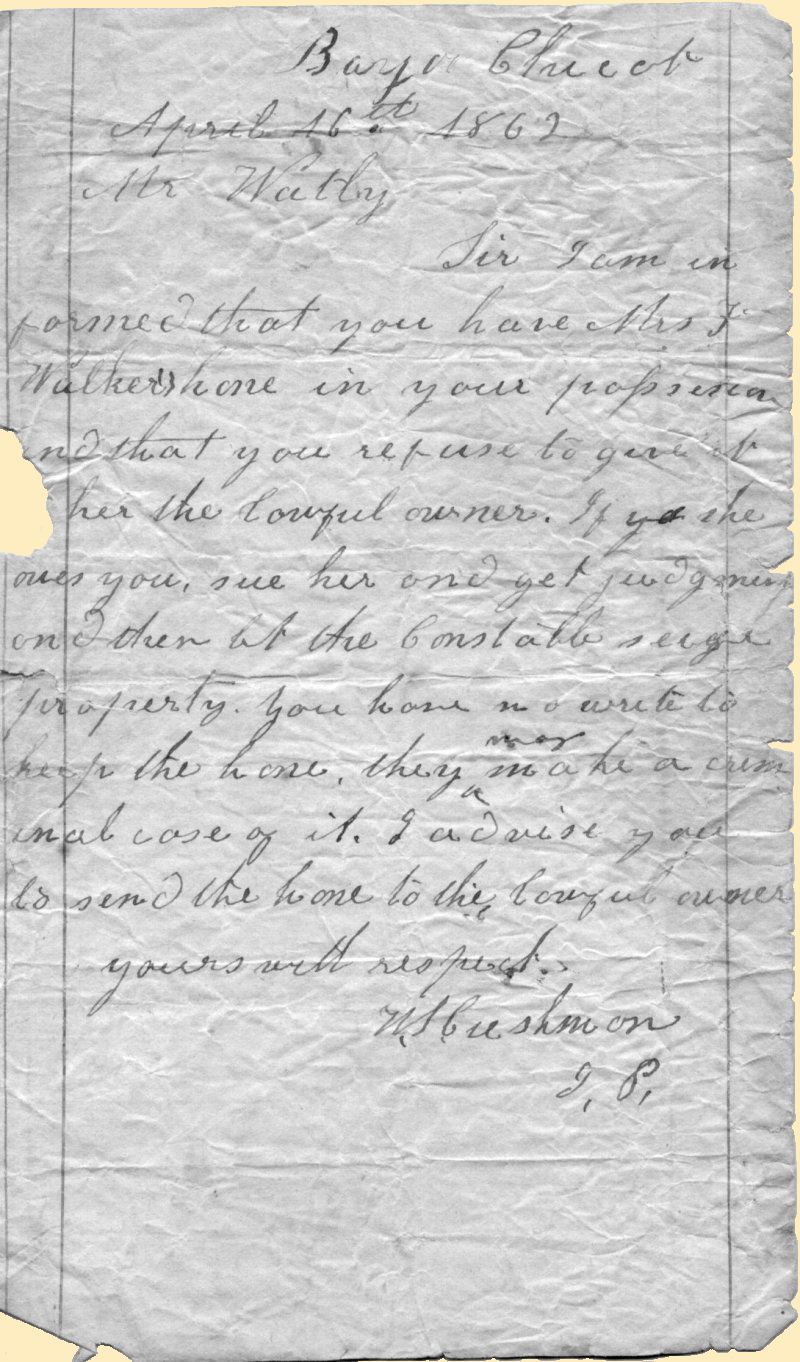 Bayou Chicot
April 16th. 1862
Mr Watly
Sir I am in
formed that you have Mrs F
Walkers horse in your possesion
and that you refuse to give it
her the lawful owner. If yo she
oues you, sue her and get judgment
and then let the Constable seige
property. You have no write to
keep the horse, they may make a crim
inal case of it. I advise you
to send the horse to the lawful owner
yours with respect.
W, S Cushman
J, P,